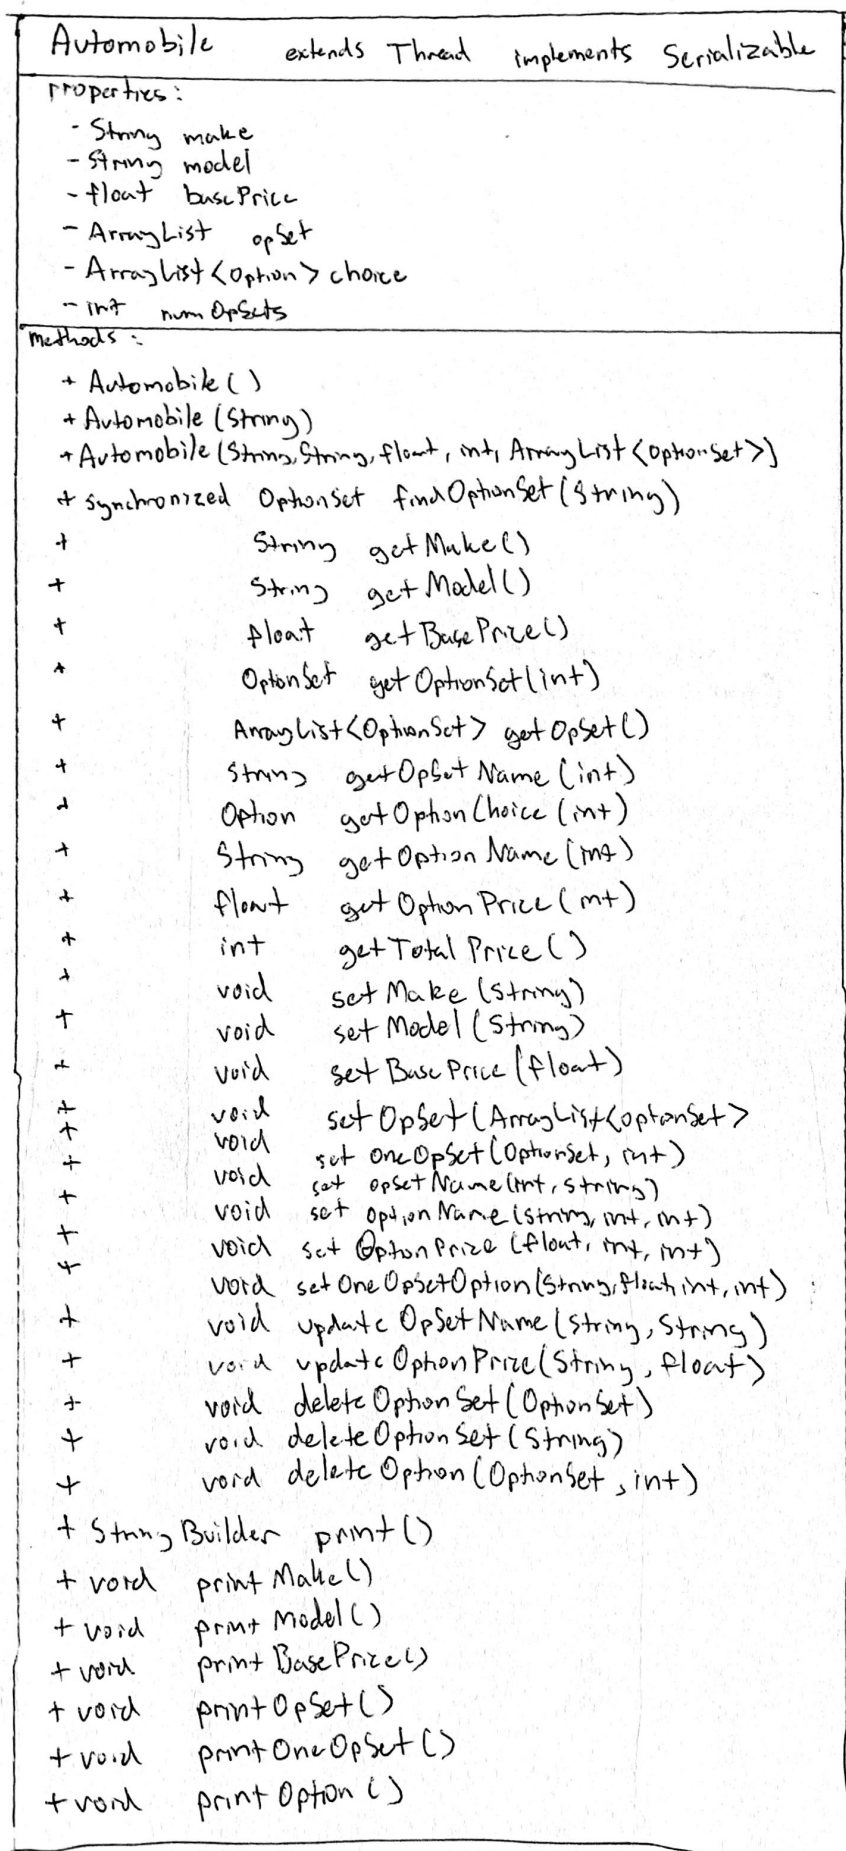 Automobile extends Thread implements Serializable
Properties:
- String make
- String model
- float basePrice
- ArrayList opSet
- ArrayList<Option> choice
- int numOpSets
methods:
+ Automobile()
+ Automobile(String)
+ Automobile(String, String, float, int, ArrayList<OptionSet>)
+ synchronized OptionSet findOptionSet(String)
+ String getMake()
+ String getModel()
+ float getBasePrice()
+ OptonSet getOptionSet(int)
+ ArrayList<OptionSet> getOpSet()
+ String getOpSetName(int)
+ Option getOptionChoice(int)
+ String getOptionName(int)
+ float getOptionPrice(int)
+ int getTotalPrice()
+ void setMake(String)
+ void setModel(String)
+ void setBasePrice(float)
+ void setOpSet(ArrayList<OptonSet>
+ void set oneOpSet(OptionSet, int)
+ void set opsetName(int, string)
+ void set optionName(string, int, int)
+ void set OptonPrice(float, int, int)
+ void setOneOpSetOption(String, float, int, int)
+ void updateOpSetName(String, String)
+ void updateOptionPrice(String, float)
+ void deleteOptionSet(OptionSet)
+ void deleteOptionSet(String)
+ void deleteOption(OptonSet, int)
+ StringBuilder print()
+ void printMake()
+ void printModel()
+ void printBasePrice()
+ void printOpSet()
+ void printOneOpSet()
+ void printOption()